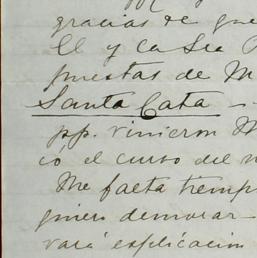 gracias de que
El y la Sra
puestas de M
Santa Cata -
pp. vinieron M
ió el curso del m
Me falta tiemp
quiero demorar
vará esplicacion